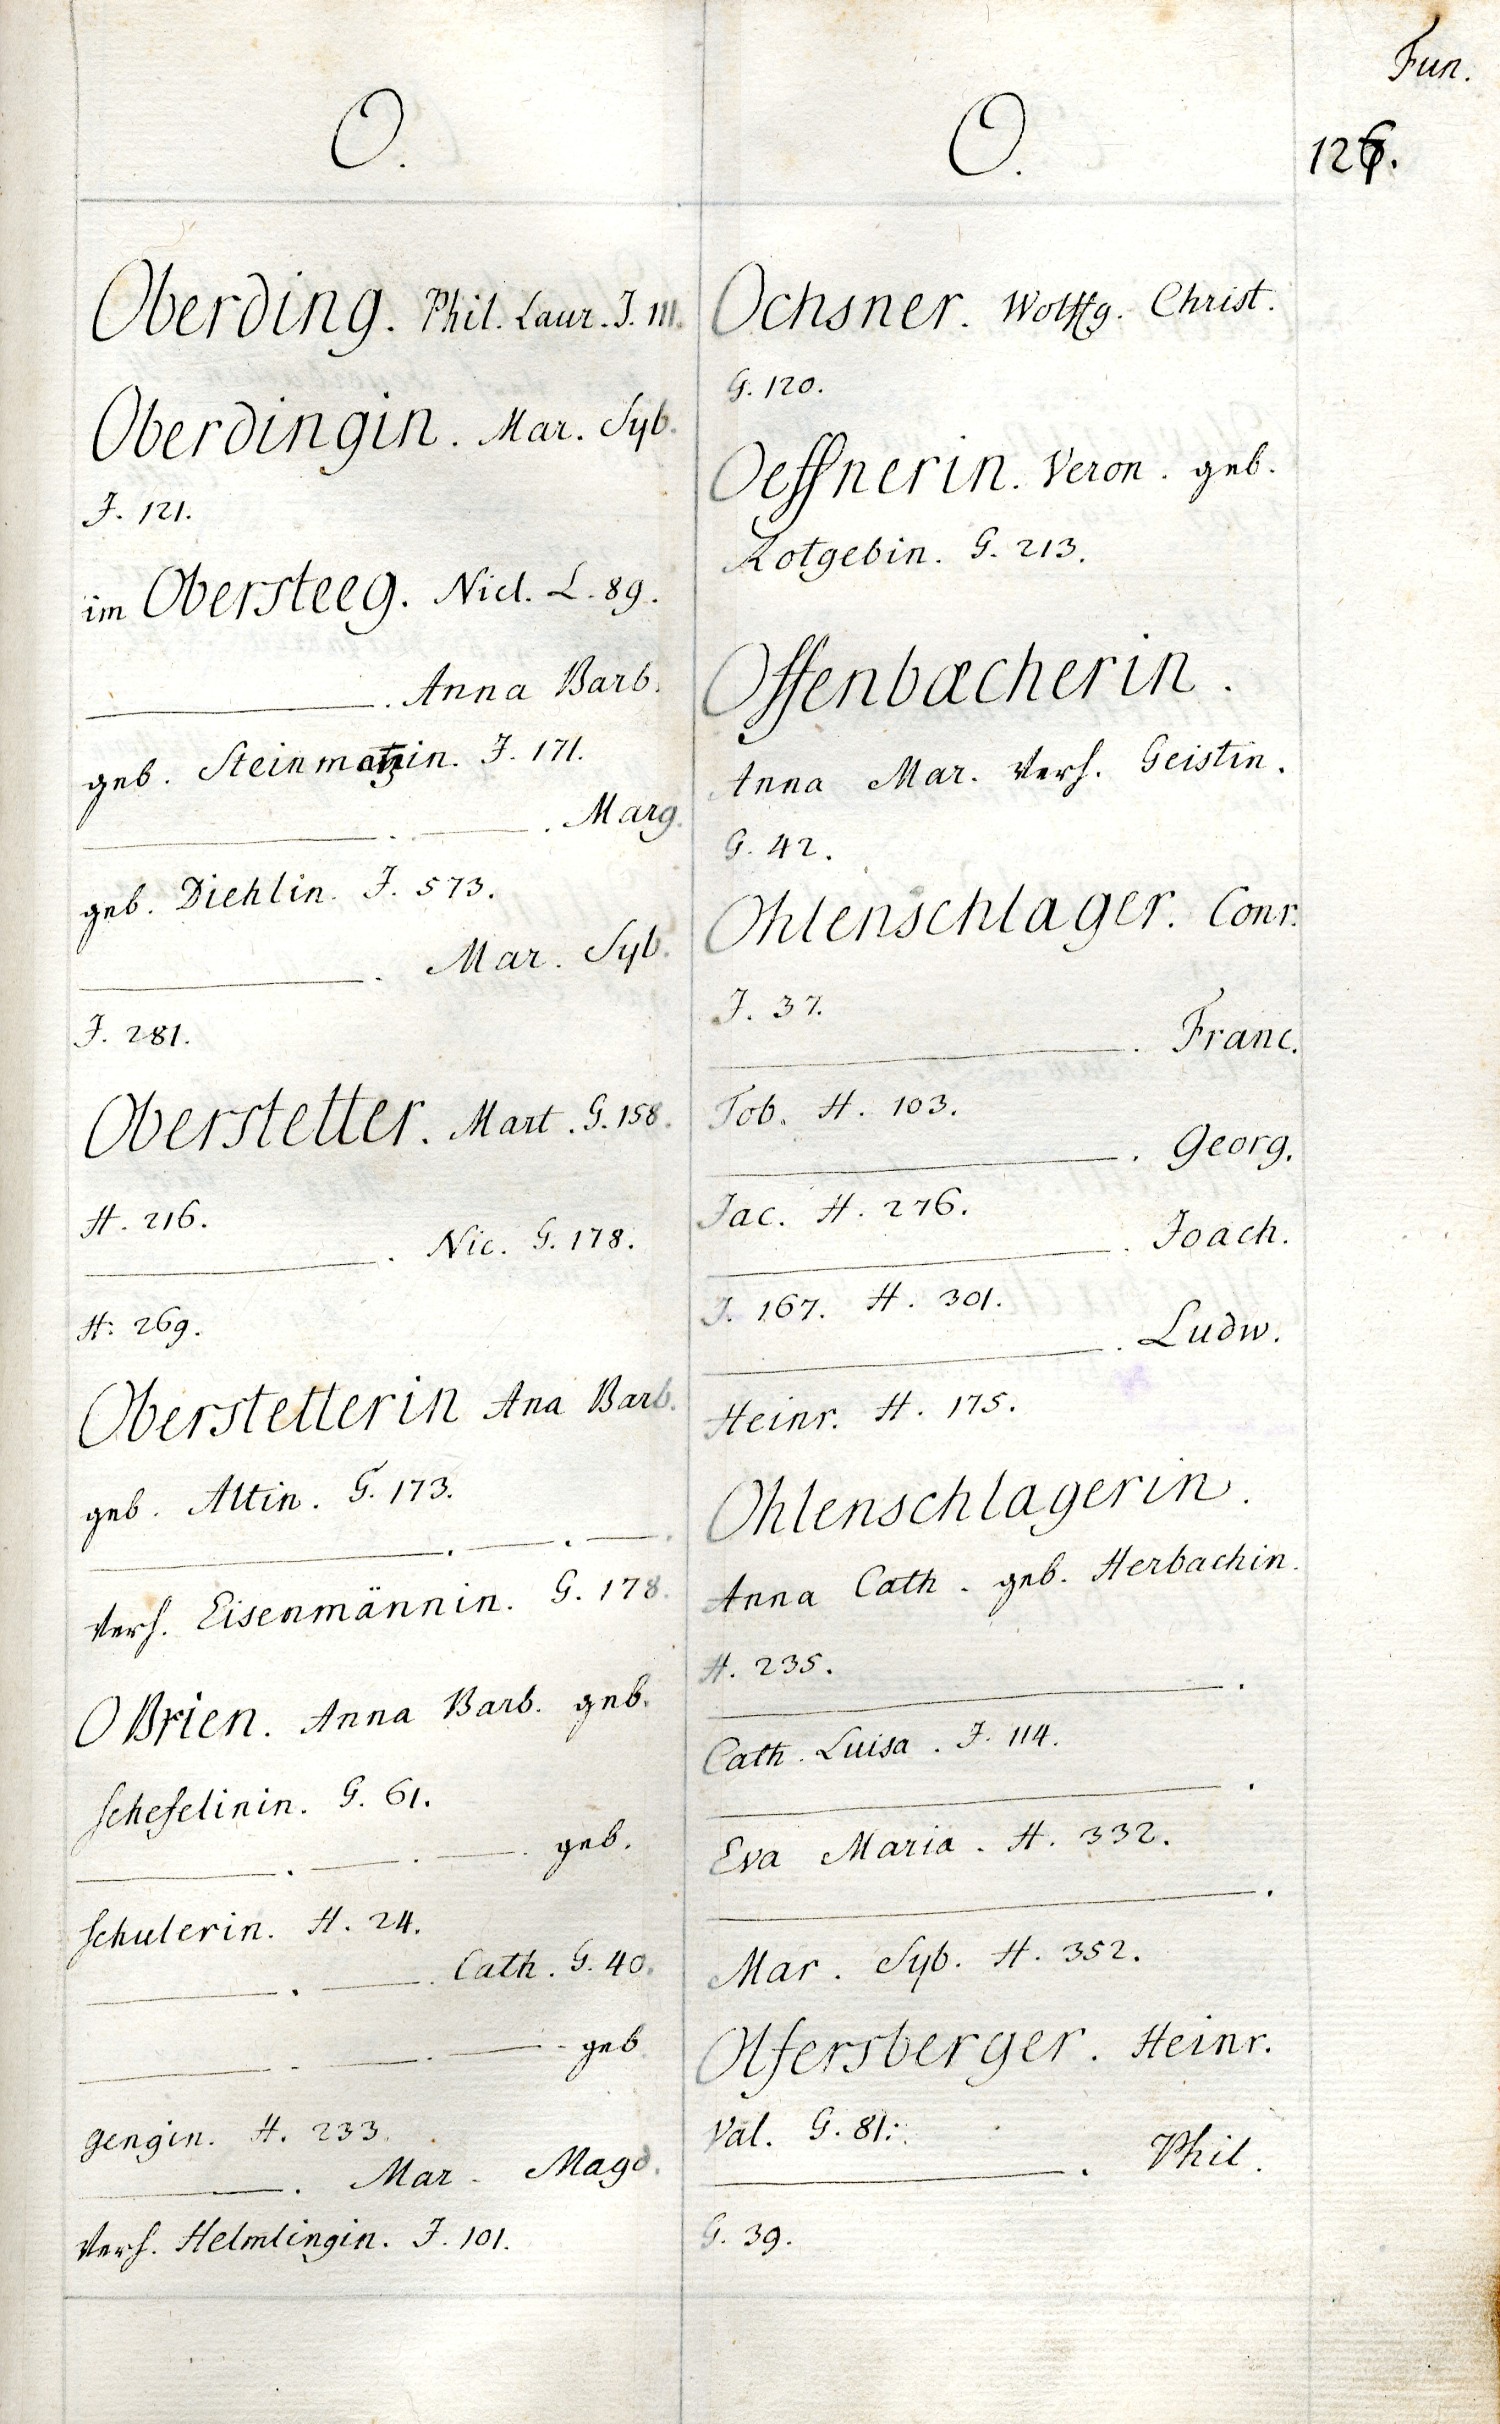 Fun.
126.
O.
Oberding. Phil. Laur. J. 111.
Oberdingin. Mar. Syb.
J. 121.
im Obersteeg. Nicl. L. 89.
———. Anna Barb.
geb. Steinmatzin. J. 171.
———. ———. Marg.
geb. Diehlin. J. 573.
———. Mar. Syb.
J. 281.
Oberstetter. Mart. G. 158.
H. 216.
———. Nic. G. 178.
H: 269.
Oberstetterin Ana Barb.
geb. Altin. G. 173.
———. ———. ———.
verh. Eisenmännin. G. 178.
OBrien. Anna Barb. geb.
Schefelinin. G. 61.
———. ———. ———. geb.
Schulerin. H. 24.
———. ———. Cath. G. 40.
———. ———. ———. geb
Gengin. H. 233.
———. Mar. Magd.
verh. Helmlingin. J. 101.
O.
Ochsner. Wolffg. Christ.
G. 120.
Oeffnerin. Veron. geb.
Rotgebin. G. 213.
Offenbæcherin.
Anna Mar. verh. Geistin.
G. 42.
Ohlenschlager. Conr.
J. 37.
———. Franc.
Tob. H. 103.
———. Georg.
Jac. H. 276.
———. Joach.
J. 167. H. 301.
———. Ludw.
Heinr. H. 175.
Ohlenschlagerin.
Anna Cath. geb. Herbachin.
H. 235.
———.
Cath. Luisa. J. 114.
———.
Eva Maria. H. 332.
———.
Mar. Syb. H. 352.
Olfersberger. Heinr.
Val. G. 81.
———. Phil.
G. 39.